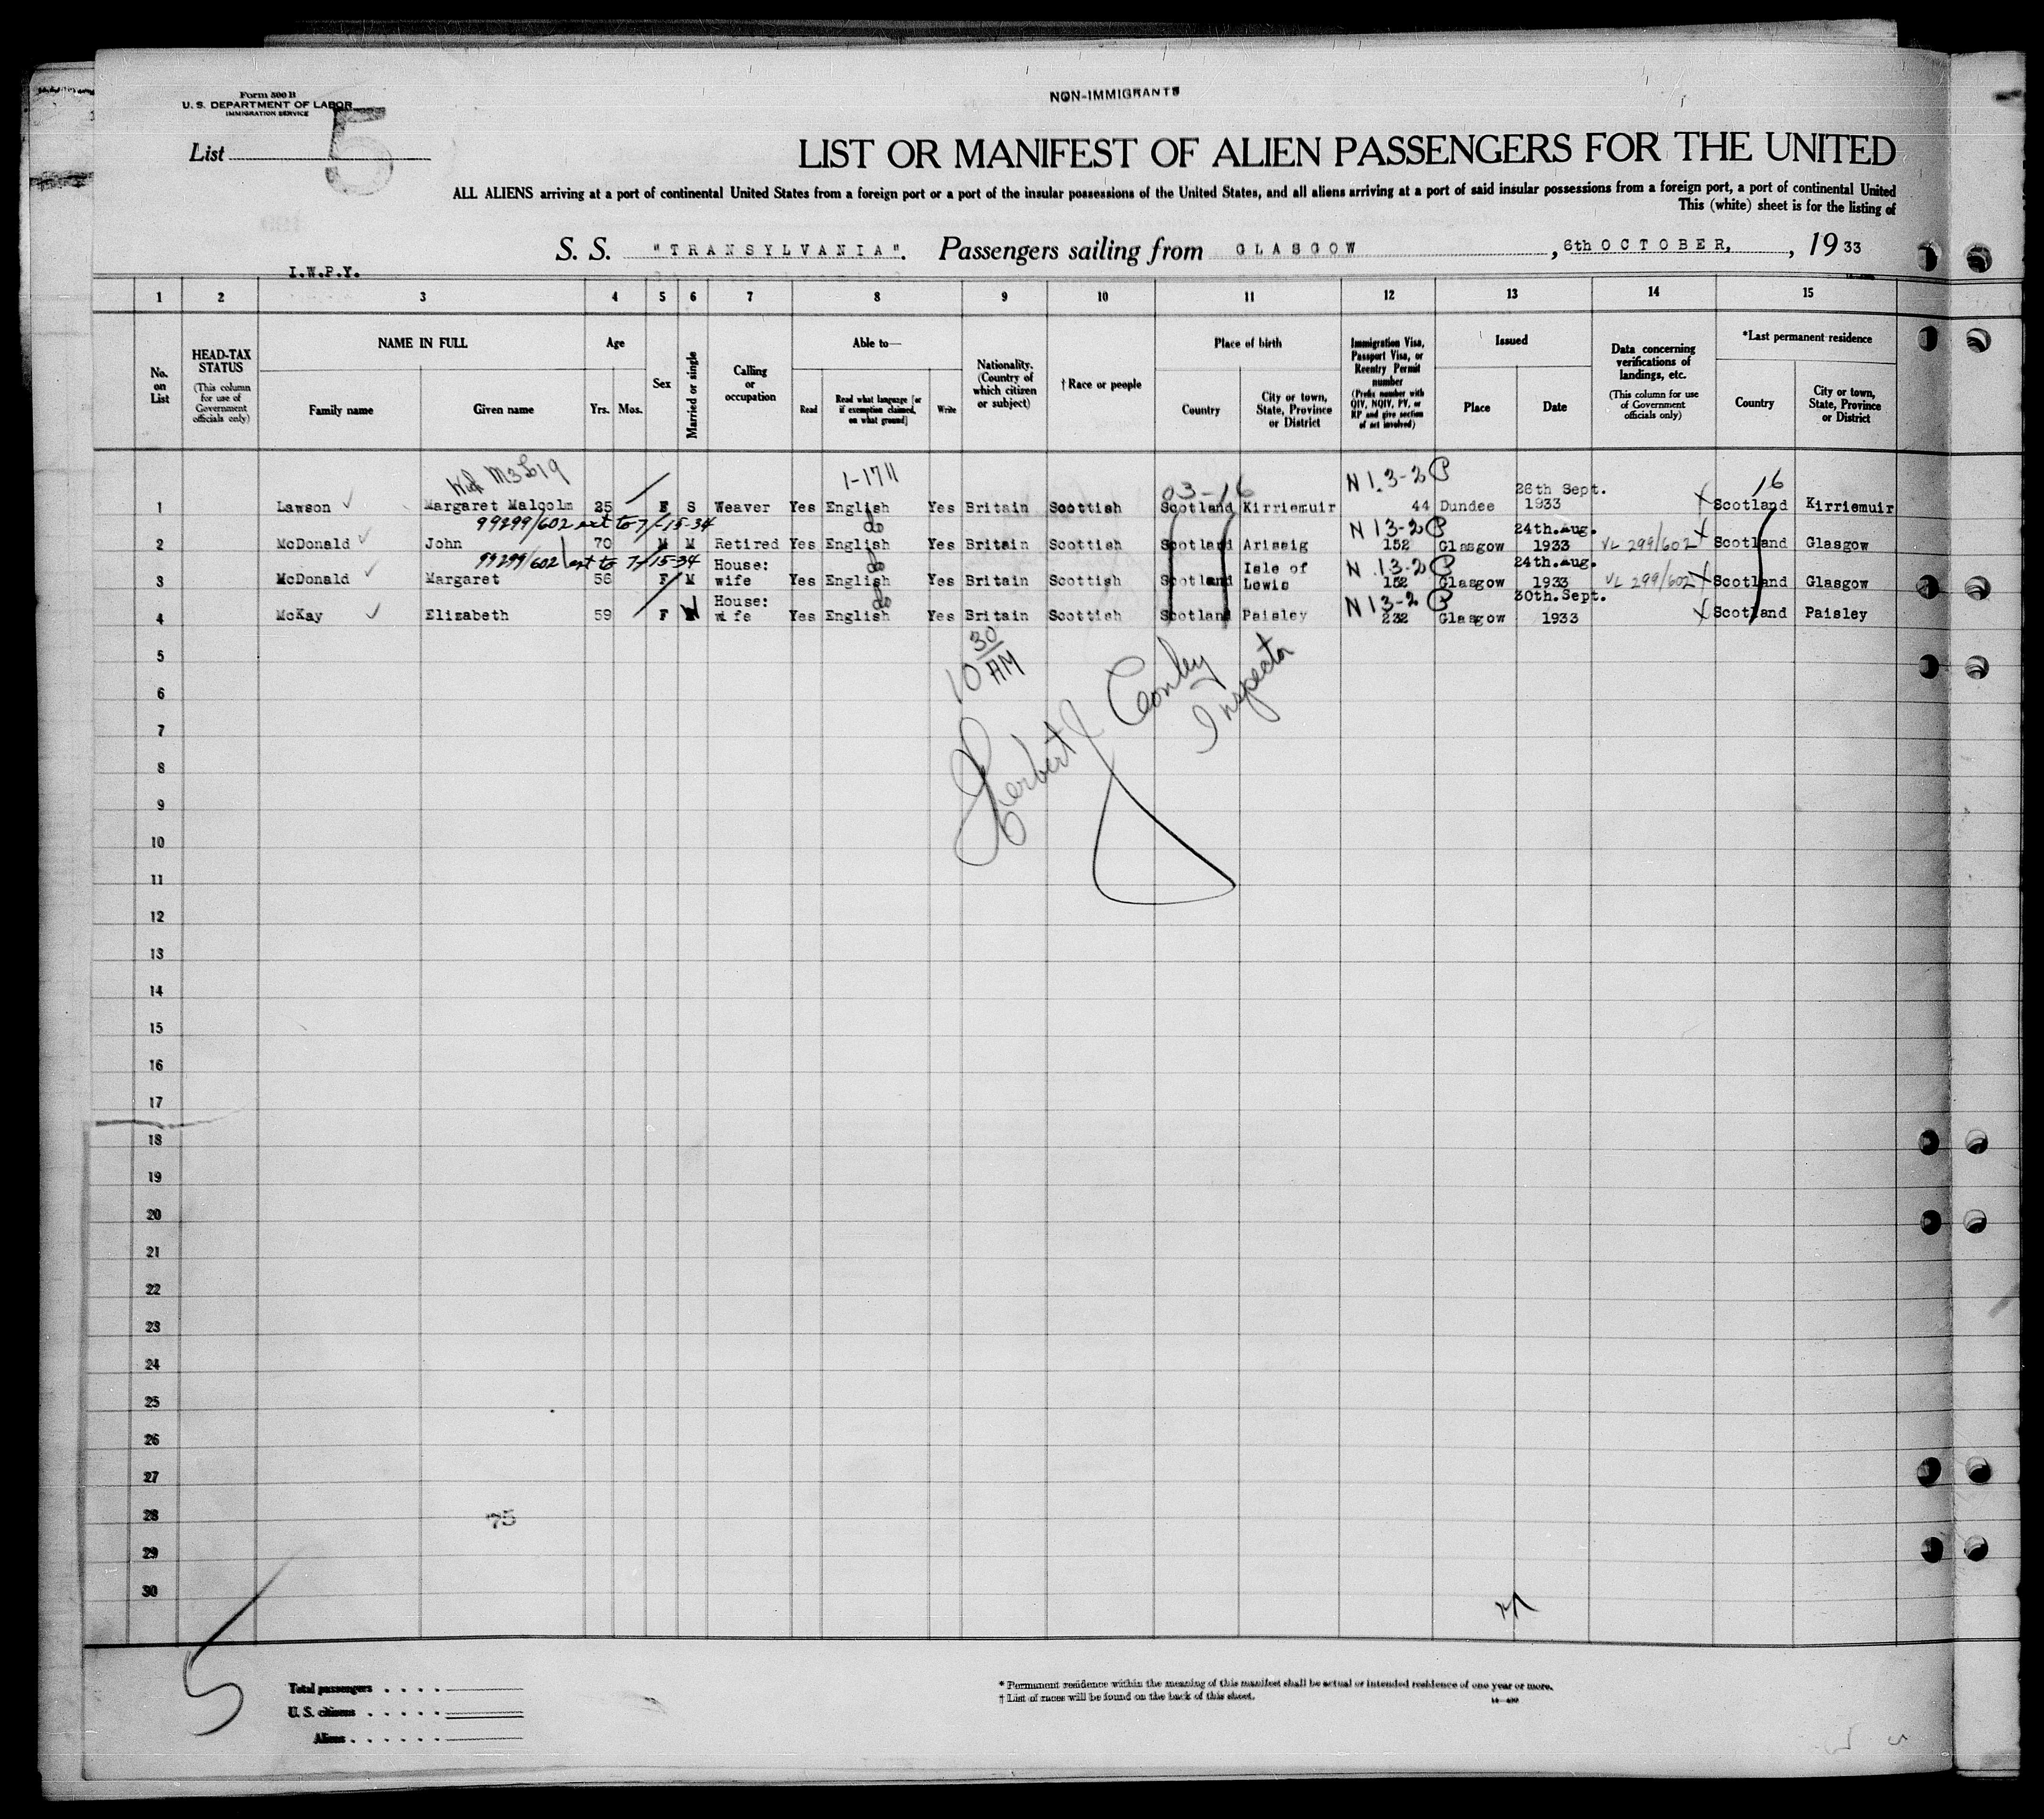 Form 500 B
U. S. DEPARTMENT OF LABOR
IMMIGRATION SERVICE
NON-IMMIGRANTS
List 5
LIST OR MANIFEST OF ALIEN PASSENGERS FOR THE UNITED
ALL ALIENS arriving at a port of continental United States from a foreign port or a port of the insular possessions of the United States, and all aliens arriving at a port of said insular possessions from a foreign port, a port of continental United
This (white) sheet is for the listing of
S. S. "TRANSYLVANIA". Passengers sailing from GLASGOW, 6th OCTOBER, , 19 33
I.W.P.Y.
1 2 3 4 5 6 7 8 9 10 11 12 13 14 15
No. on List
HEAD-TAX STATUS (This column for use of Government officials only)
NAME IN FULL
Family name Given name
Age
Yrs. Mos.
Sex
Married or single
Calling or occupation
Able to—
Read Read what language [or if exemption claimed, on what ground] Write
Nationality. (Country of which citizen or subject)
† Race or people
Place of birth
Country City or town, State, Province or District
Immigration Visa, Passport Visa, or Reentry Permit number (Prefix number with QIV, NQIV, PV, or RP and give section of act involved)
Issued
Place Date
Data concerning verifications of landings, etc. (This column for use of Government officials only)
*Last permanent residence
Country City or town, State, Province or District
M3619 1-1711 03-16 N 1.3-2 P 26th Sept. 16
1 Lawson Margaret Malcolm 25 F S Weaver Yes English Yes Britain Scottish Scotland Kirriemuir 44 Dundee 1933 Scotland Kirriemuir
99299/602 ext to 7-15-34 do N 13-2 P 24th.Aug.
2 McDonald John 70 M M Retired Yes English Yes Britain Scottish Scotland Arisaig 152 Glasgow 1933 VL 299/602 Scotland Glasgow
99299/602 ext to 7-15-34 House: do Isle of N 13-2 P 24th.Aug.
3 McDonald Margaret 56 F M wife Yes English Yes Britain Scottish Scotland Lewis 152 Glasgow 1933 VL 299/602 Scotland Glasgow
House: do N 13-2 P 30th.Sept.
4 McKay Elizabeth 59 F W wife Yes English Yes Britain Scottish Scotland Paisley 232 Glasgow 1933 Scotland Paisley
5
6
7
8
9
10
11
12
13
14
15
16
17
18
19
20
21
22
23
24
25
26
27
28
29
30
10 30/AM
Herbert J Conley
Inspector
75
5
Total passengers . . . .
U. S. citizens . . . . .
Aliens . . . . . .
* Permanent residence within the meaning of this manifest shall be actual or intended residence of one year or more.
† List of races will be found on the back of this sheet.